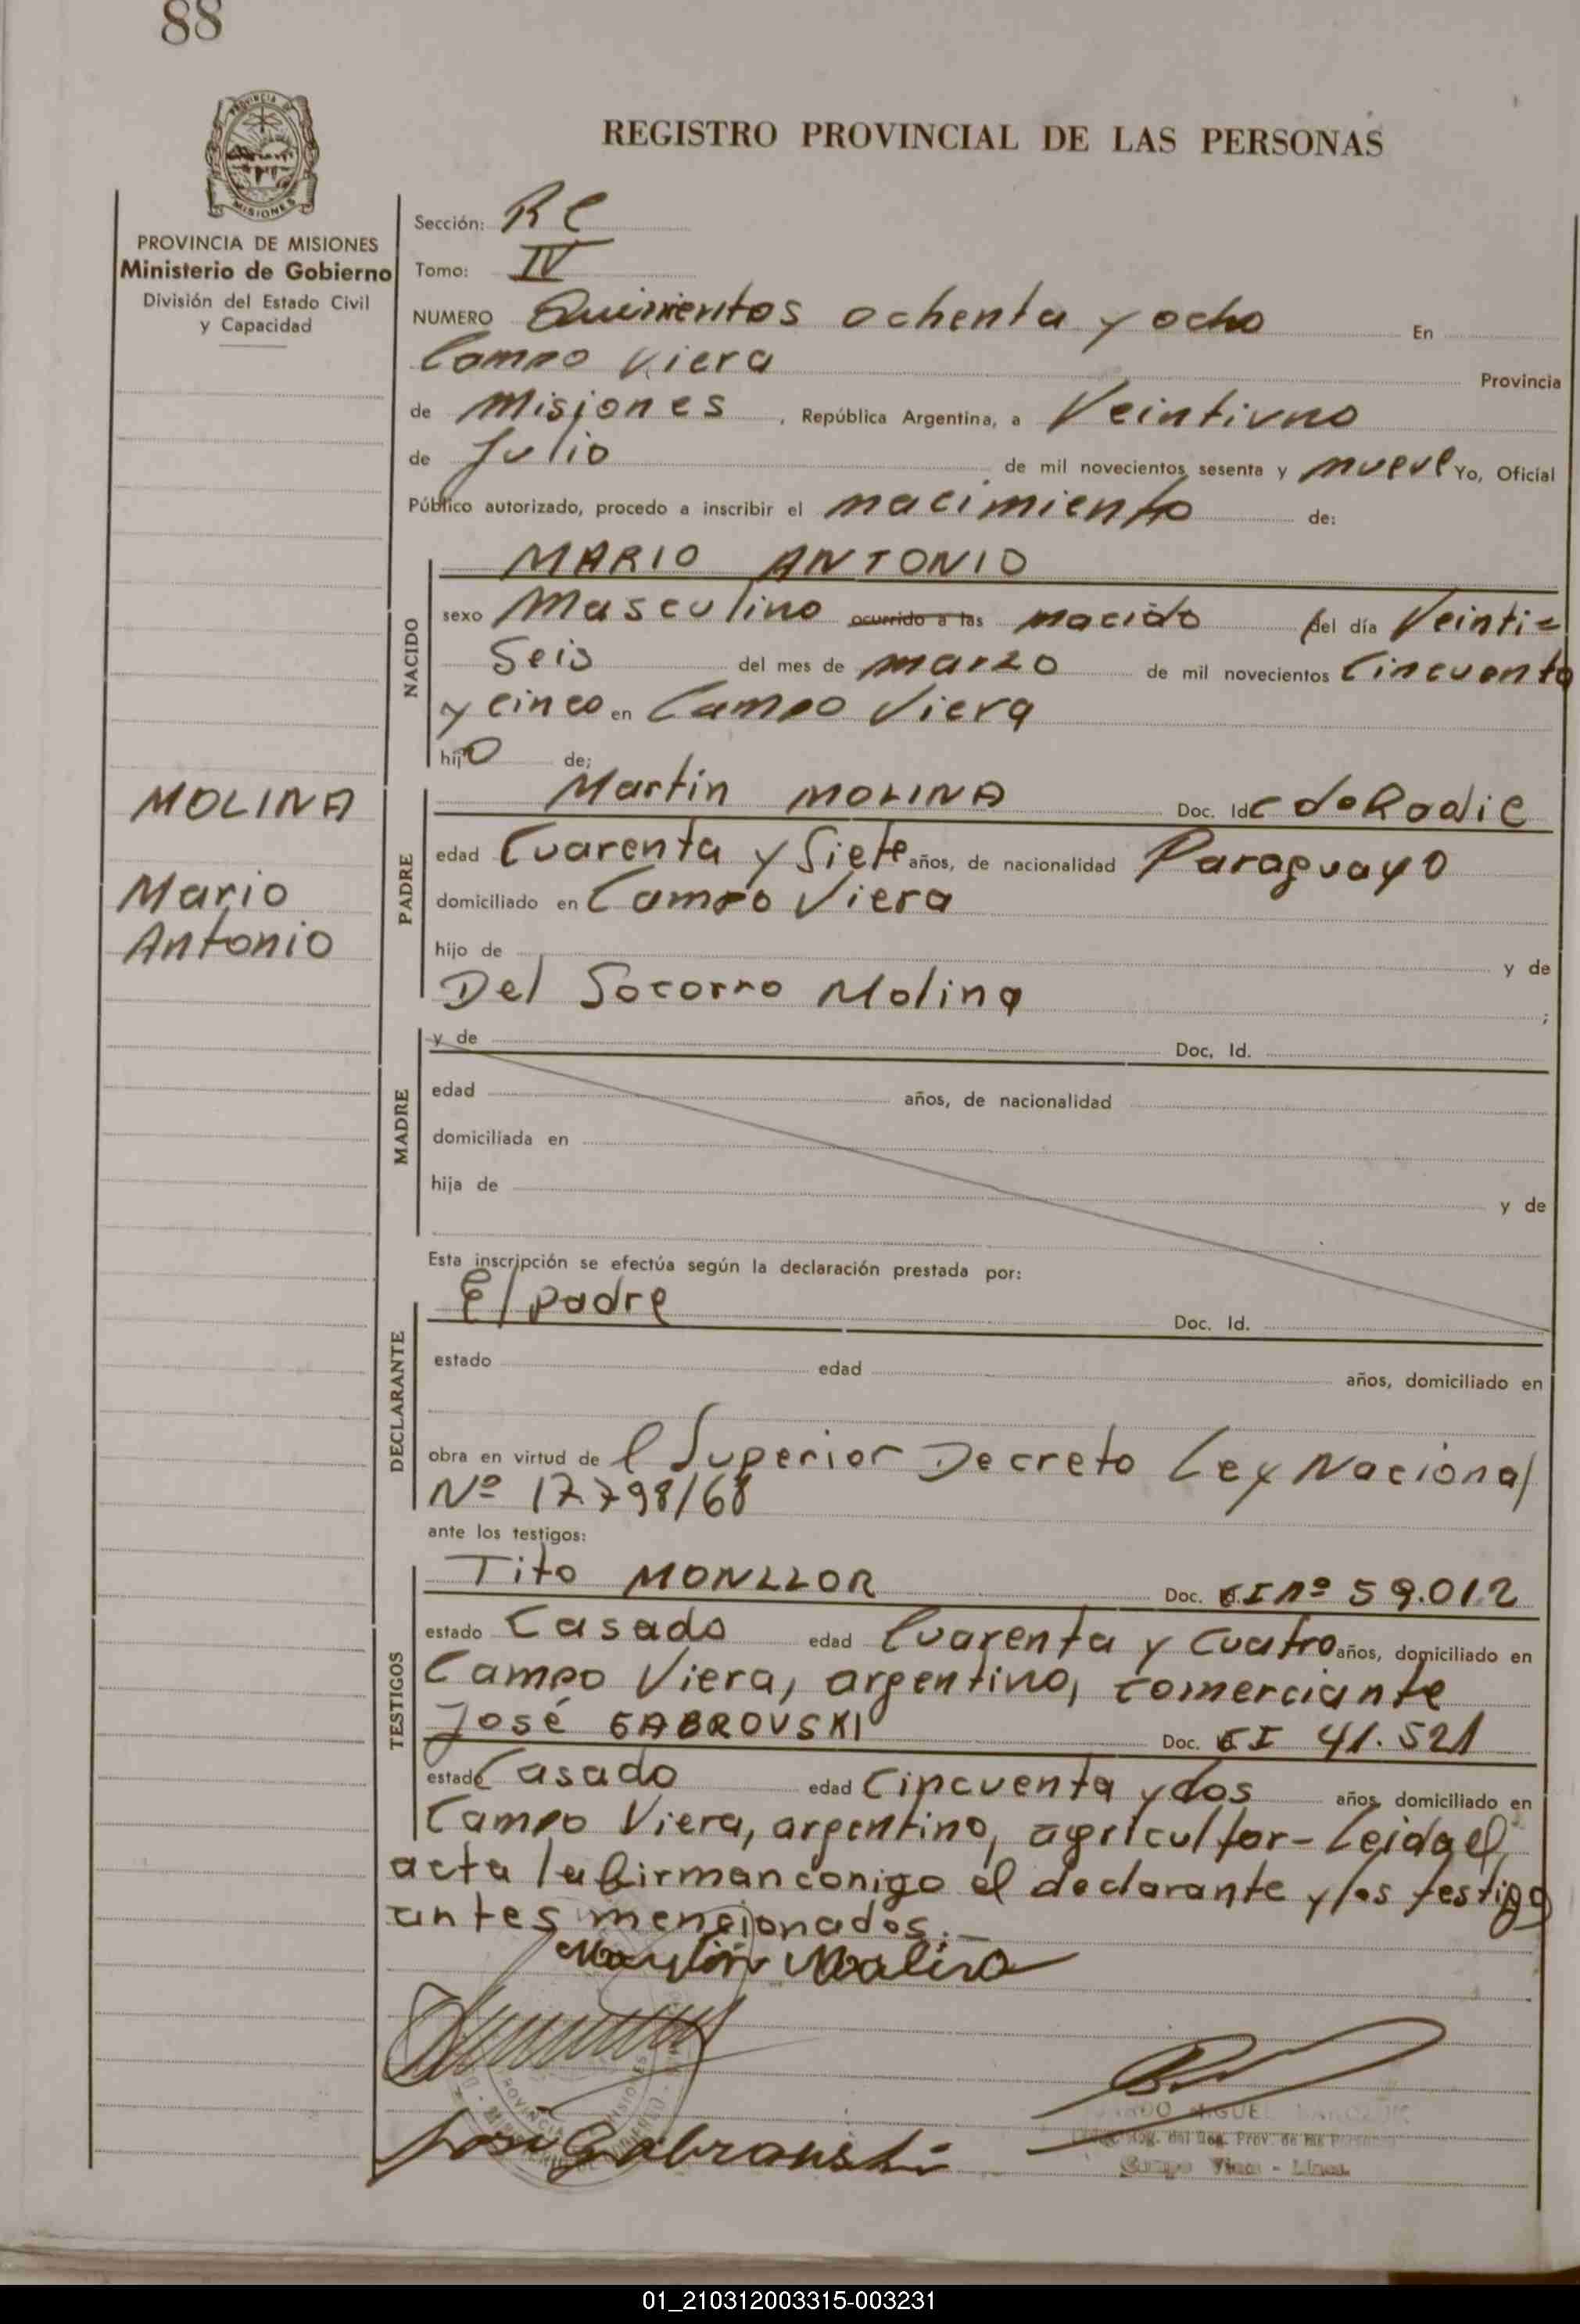 88
REGISTRO PROVINCIAL DE LAS PERSONAS
PROVINCIA DE MISIONES
Ministerio de Gobierno
División del Estado Civil
y Capacidad
Sección: RC
Tomo: IV
NUMERO Quinientos ochenta y ocho En
Campo Viera Provincia
de Misiones, República Argentina, a Veintiuno
de Julio de mil novecientos sesenta y nueve Yo, Oficial
Público autorizado, procedo a inscribir el nacimiento de:
NACIDO
MARIO ANTONIO
sexo Masculino ocurrido a las nacido del día Veinti=
Seis del mes de marzo de mil novecientos Cincuenta
y cinco en Campo Viera
hijo de;
MOLINA
Mario
Antonio
PADRE
Martin MOLINA Doc. Id C de Radic
edad Cuarenta y Siete años, de nacionalidad Paraguayo
domiciliado en Campo Viera
hijo de y de
Del Socorro Molina ;
MADRE
y de Doc. Id.
edad años, de nacionalidad
domiciliada en
hija de y de
Esta inscripción se efectúa según la declaración prestada por:
DECLARANTE
El padre Doc. Id.
estado edad años, domiciliado en
obra en virtud de l Superior Decreto Ley Nacional
Nº 17.798/68
ante los testigos:
TESTIGOS
Tito MONLLOR Doc. CI Nº 59.012
estado Casado edad Cuarenta y Cuatro años, domiciliado en
Campo Viera, argentino, comerciante
José GABROVSKI Doc. CI 41.521
estado Casado edad Cincuenta y dos años, domiciliado en
Campo Viera, argentino, agricultor - Leida el
acta la firman conigo el declarante y los testigo
antes mencionados.-
Martin Molina
José Gabrovski
MISIONES
01_210312003315-003231